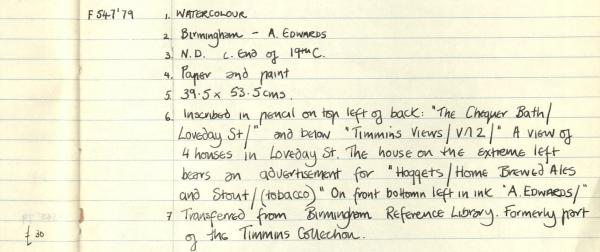 F547'79 1. WATERCOLOUR
2 Birmingham - A. EDWARDS
3 N.D. c. End of 19th C.
4. Paper and paint
5. 39.5 x 53.5 cms.
6. Inscribed in pencil on top left of back: "The Chequer Bath/
Loveday St/" and below "Timmins Views/VII 2/" A view of
4 houses in Loveday St. The house on the extreme left
bears an advertisement for "Hoggets/Home Brewed Ales
and Stout/(tobacco)" On front bottomn left in ink "A. EDWARDS/"
7 Transferred from Birmingham Reference Library. Formerly part
£30 of the Timmins Collection.